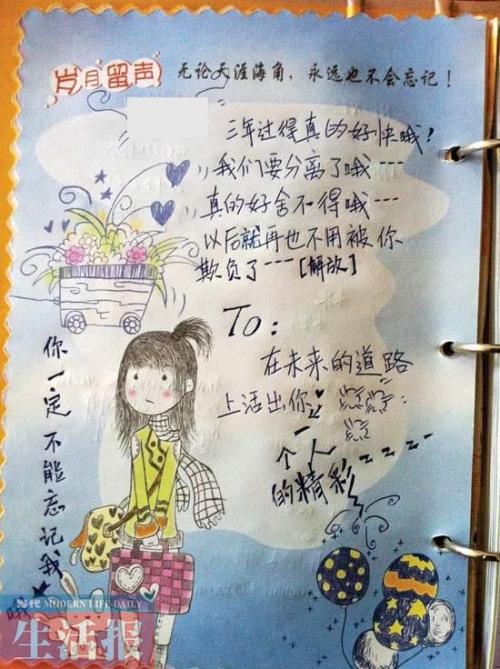 岁月留声 无论天涯海角，永远也不会忘记！
三年过得真的好快哦！
我们要分离了哦---
真的好舍不得哦---
以后就再也不用被你
欺负了---[解放]
To：
在未来的道路
上活出你
一
个人
的精彩
你一定不能忘记我
MODERN LIFE DAILY
生活报